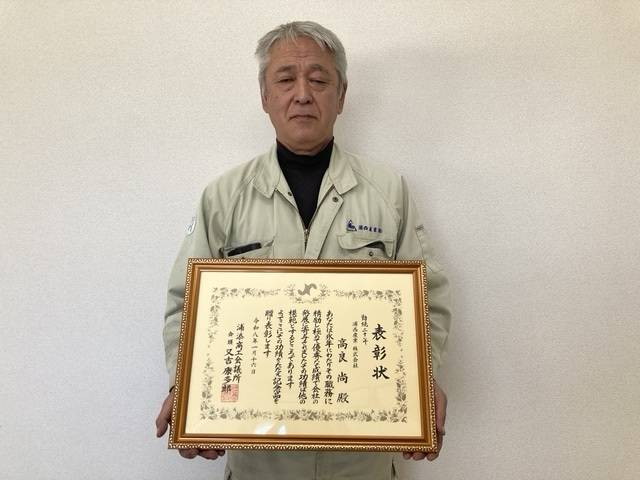 表彰状
勤続三十年
浦西産業 株式会社
高良 尚 殿
あなたは永年にわたりその職務に
精励し極めて優秀な成績で会社の
発展に寄与されましたその功績は他の
模範とするところであります
よってここにその功績をたたえ記念品を
贈り表彰します
令和八年一月十六日
浦添商工会議所
会頭 又吉 康多郎